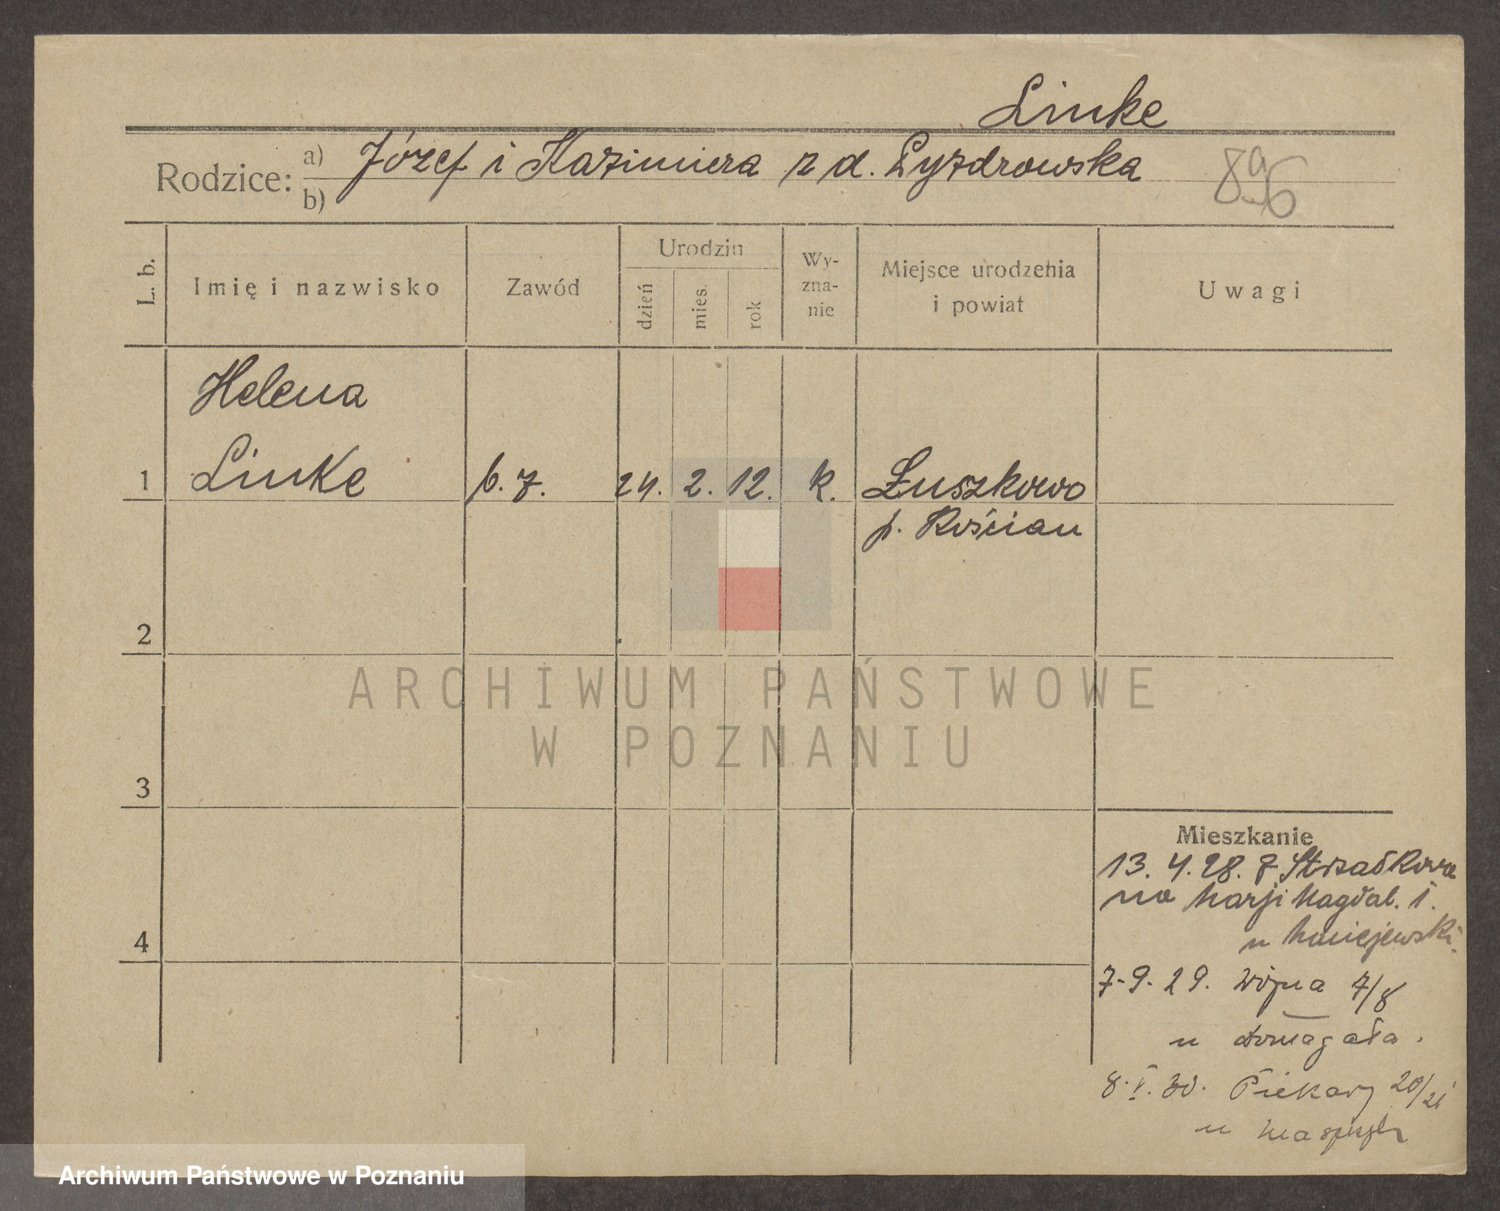 Linke
Rodzice: a) Józef i Kazimiera z d. Łyzdrowska
b)
896
L. b.
Imię i nazwisko
Zawód
Urodzin
dzień
mies.
rok
Wy-
zna-
nie
Miejsce urodzenia
i powiat
Uwagi
Helena
1 Linke b. z. 24. 2. 12. k. Łuszkowo
p. Kościan
2
3
4
Mieszkanie
13. 4. 28. z Strzałkowa
na Marji Magdal. 1.
u Maciejewski.
7-9. 29. Wójna 7/8
u Domagała.
8. I. 30. Piekary 20/21
u
ARCHIWUM PAŃSTWOWE
W POZNANIU
Archiwum Państwowe w Poznaniu